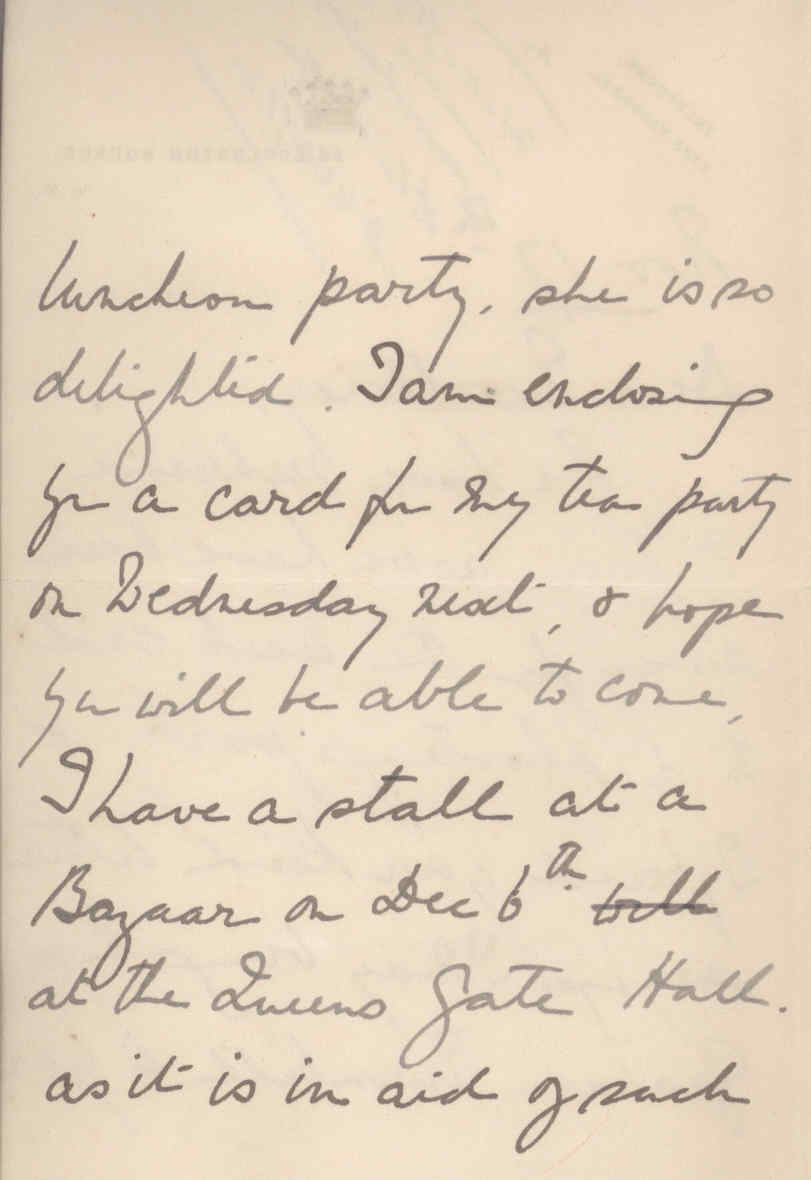 luncheon party, she is so
delighted. I am enclosing
you a card for my tea party
on Wednesday next, & hope
you will be able to come,
I have a stall at a
Bazaar on Dec 6th will
at the Queens Gate Hall.
as it is in aid of such